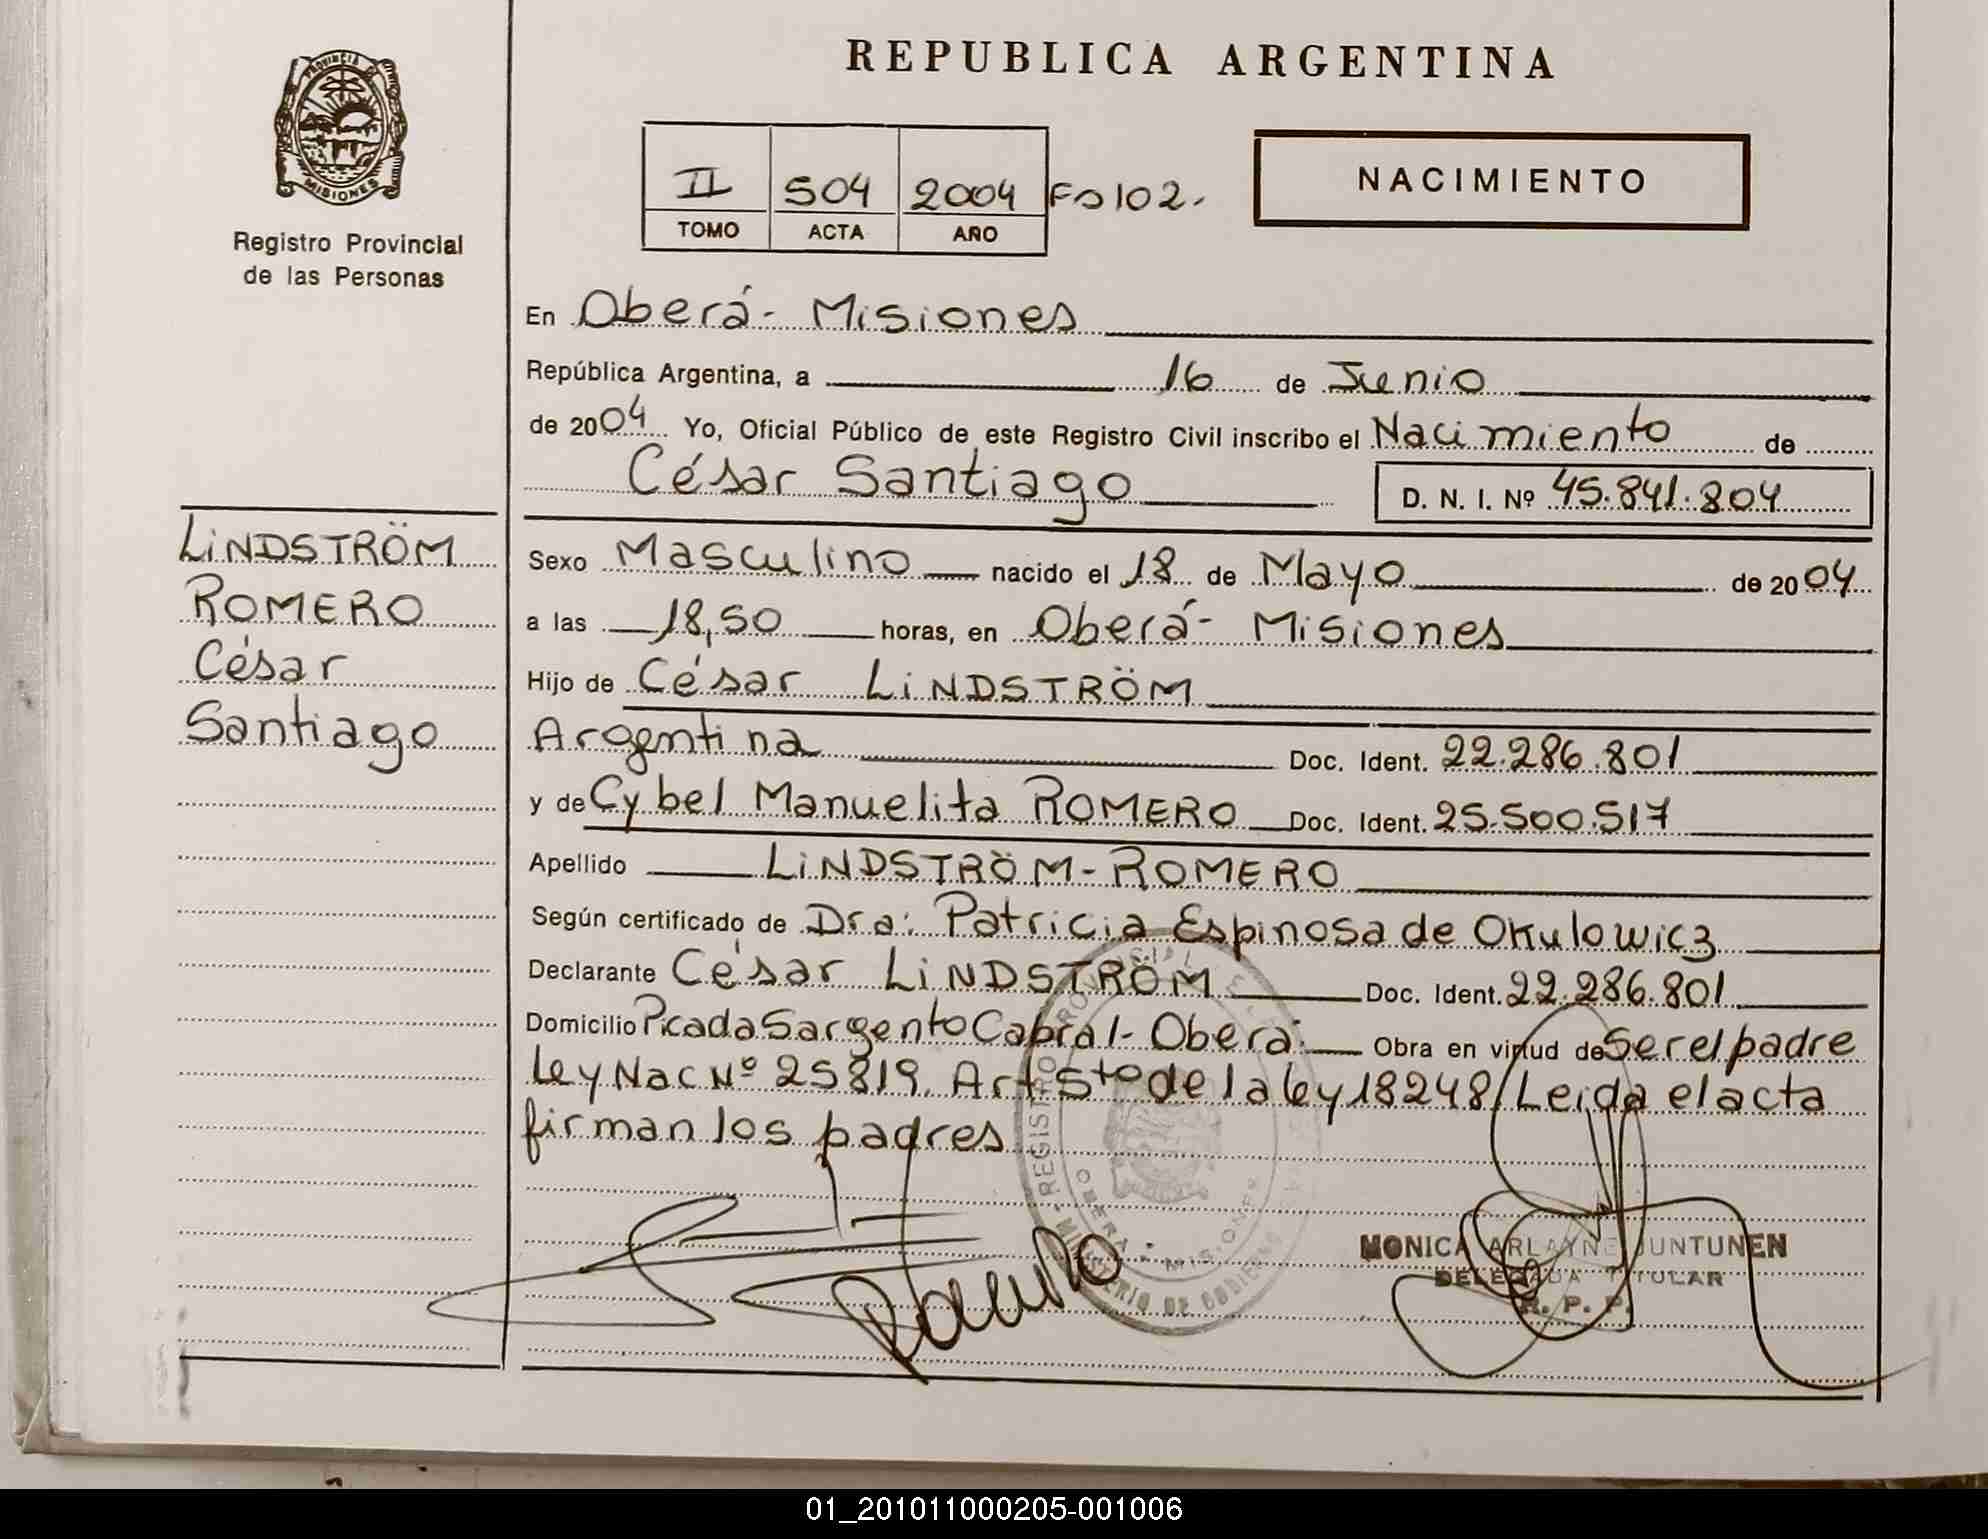 REPUBLICA ARGENTINA
PROVINCIA DE MISIONES
Registro Provincial
de las Personas
II 504 2004 Fo 102.
TOMO ACTA AÑO
NACIMIENTO
En Oberá - Misiones
República Argentina, a 16 de Junio
de 2004 Yo, Oficial Público de este Registro Civil inscribo el Nacimiento de
César Santiago D. N. I. Nº 45.841.804
LiNDSTRÖM
ROMERO
César
Santiago
Sexo Masculino nacido el 18 de Mayo de 2004
a las 18,50 horas, en Oberá - Misiones
Hijo de César LiNDSTRÖM
Argentina Doc. Ident. 22.286.801
y de Cybel Manuelita ROMERO Doc. Ident. 25.500.517
Apellido LiNDSTRÖM - ROMERO
Según certificado de Dra: Patricia Espinosa de Okulowicz
Declarante César LiNDSTRÖM Doc. Ident. 22.286.801
Domicilio Picada Sargento Cabral - Oberá Obra en virtud de Ser el padre
Ley Nac Nº 25819. Art 5to de la ley 18248/ Leida el acta
firman los padres
REGISTRO PROVINCIAL DE LAS PERSONAS
OBERA - MISIONES
MINISTERIO DE GOBIERNO
Romero
MONICA ARLAYNE JUNTUNEN
DELEGADA TITULAR
R. P. P.
01_201011000205-001006